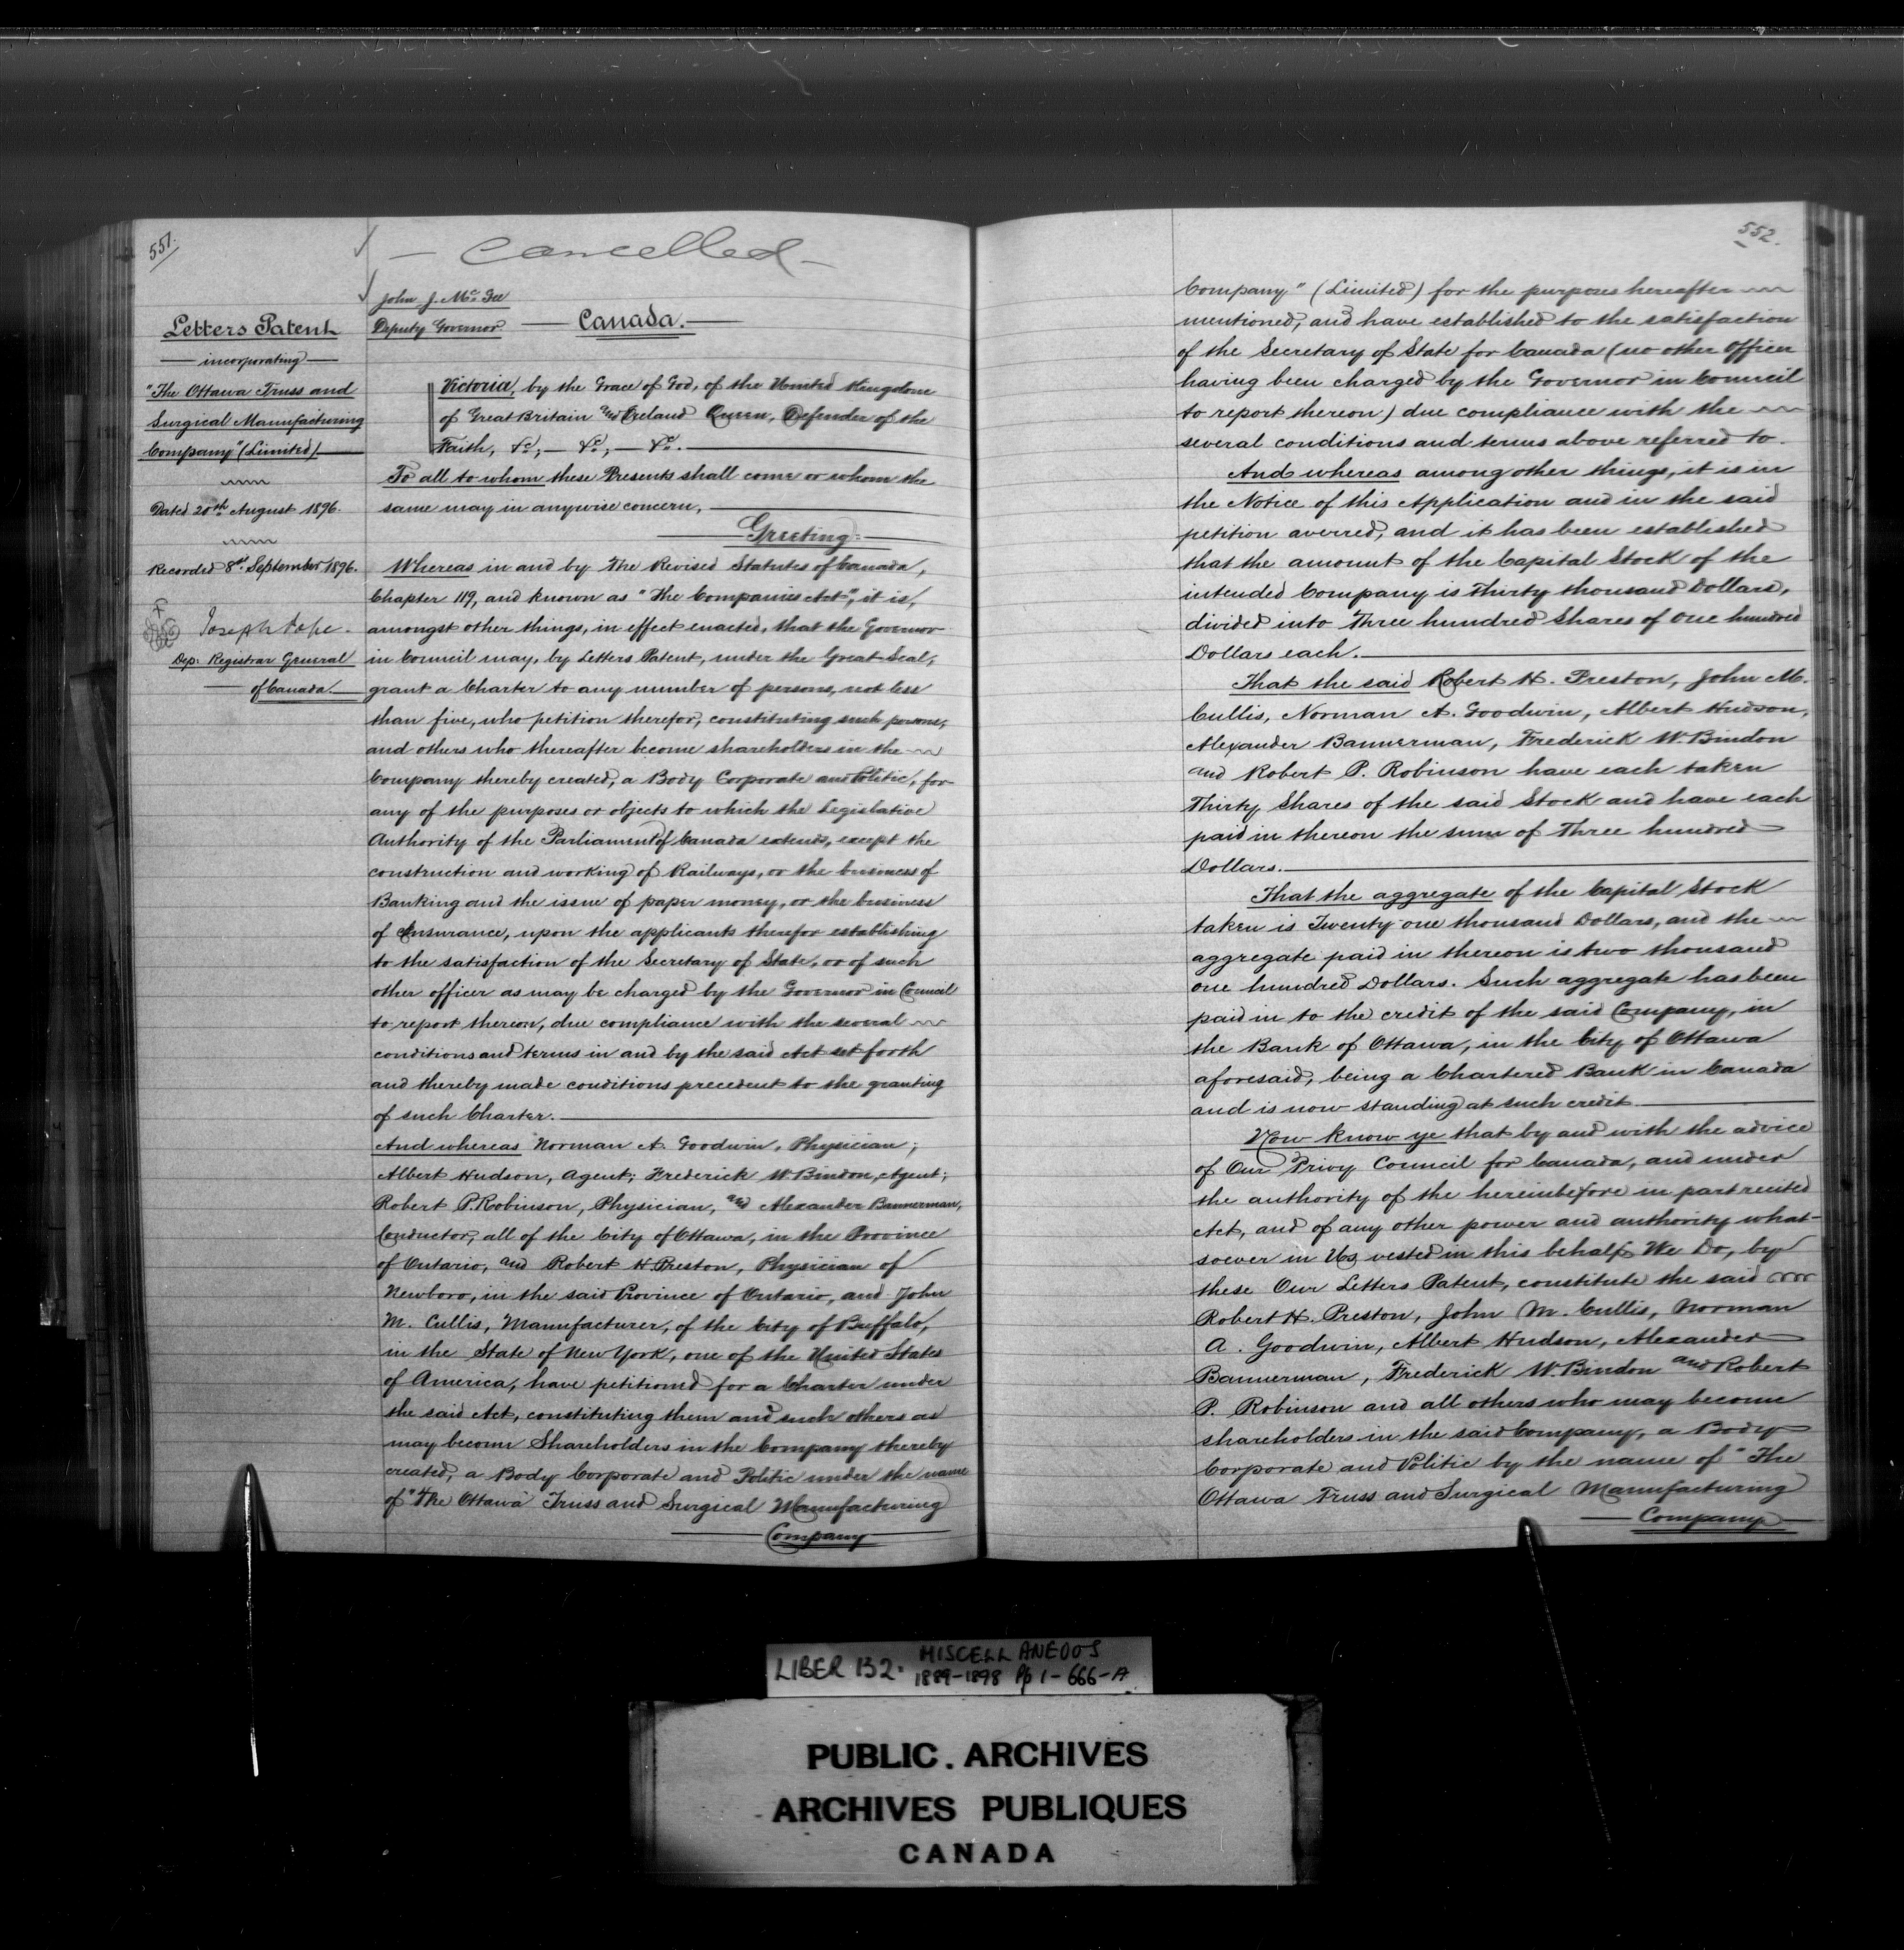 551.
— Cancelled —
John J. McGee
Deputy Governor — Canada. —
Letters Patent
— incorporating —
"The Ottawa Truss and
Surgical Manufacturing
Company" (Limited)
Dated 20th August 1896.
Recorded 8th September 1896.
Joseph Pope.
Dep: Registrar General
of Canada.
Victoria, by the Grace of God, of the United Kingdom
of Great Britain and Ireland Queen, Defender of the
Faith, &c, — &c, — &c. —
To all to whom these Presents shall come or whom the
same may in anywise concern, —
— Greeting: —
Whereas in and by The Revised Statutes of Canada,
Chapter 119, and known as "The Companies Act", it is,
amongst other things, in effect enacted, that the Governor
in Council may, by Letters Patent, under the Great Seal,
grant a Charter to any number of persons, not less
than five, who petition therefor, constituting such persons,
and others who thereafter become shareholders in the
Company thereby created, a Body Corporate and Politic, for
any of the purposes or objects to which the Legislative
Authority of the Parliament of Canada extends, except the
construction and working of Railways, or the business of
Banking and the issue of paper money, or the business
of Insurance, upon the applicants therefor establishing
to the satisfaction of the Secretary of State, or of such
other officer as may be charged by the Governor in Council
to report thereon, due compliance with the several
conditions and terms in and by the said Act set forth
and thereby made conditions precedent to the granting
of such Charter. —
And whereas Norman A. Goodwin, Physician;
Albert Hudson, Agent; Frederick W. Bindon, Agent;
Robert P. Robinson, Physician, and Alexander Bannerman,
Conductor, all of the City of Ottawa, in the Province
of Ontario, and Robert H. Preston, Physician of
Newboro, in the said Province of Ontario, and John
M. Cullis, Manufacturer, of the City of Buffalo,
in the State of New York, one of the United States
of America, have petitioned for a Charter under
the said Act, constituting them and such others as
may become Shareholders in the Company thereby
created, a Body Corporate and Politic under the name
of "The Ottawa Truss and Surgical Manufacturing
— Company —
552.
Company" (Limited) for the purposes hereafter
mentioned, and have established to the satisfaction
of the Secretary of State for Canada (no other Officer
having been charged by the Governor in Council
to report thereon) due compliance with the
several conditions and terms above referred to.
And whereas among other things, it is in
the Notice of this Application and in the said
petition averred, and it has been established
that the amount of the Capital Stock of the
intended Company is Thirty thousand Dollars,
divided into Three hundred Shares of One hundred
Dollars each. —
That the said Robert H. Preston, John M.
Cullis, Norman A. Goodwin, Albert Hudson,
Alexander Bannerman, Frederick W. Bindon
and Robert P. Robinson have each taken
Thirty Shares of the said Stock and have each
paid in thereon the sum of Three hundred
Dollars. —
That the aggregate of the Capital Stock
taken is Twenty one thousand Dollars, and the
aggregate paid in thereon is two thousand
one hundred Dollars. Such aggregate has been
paid in to the credit of the said Company, in
the Bank of Ottawa, in the City of Ottawa
aforesaid, being a Chartered Bank in Canada
and is now standing at such credit —
Now know ye that by and with the advice
of Our Privy Council for Canada, and under
the authority of the hereinbefore in part recited
Act, and of any other power and authority what-
soever in Us vested in this behalf We Do, by
these Our Letters Patent, constitute the said
Robert H. Preston, John M. Cullis, Norman
A. Goodwin, Albert Hudson, Alexander
Bannerman, Frederick W. Bindon and Robert
P. Robinson and all others who may become
shareholders in the said Company, a Body
Corporate and Politic by the name of "The
Ottawa Truss and Surgical Manufacturing
— Company —
LIBER 132. MISCELLANEOUS
1889-1898 Pp 1-666-A
PUBLIC. ARCHIVES
ARCHIVES PUBLIQUES
CANADA